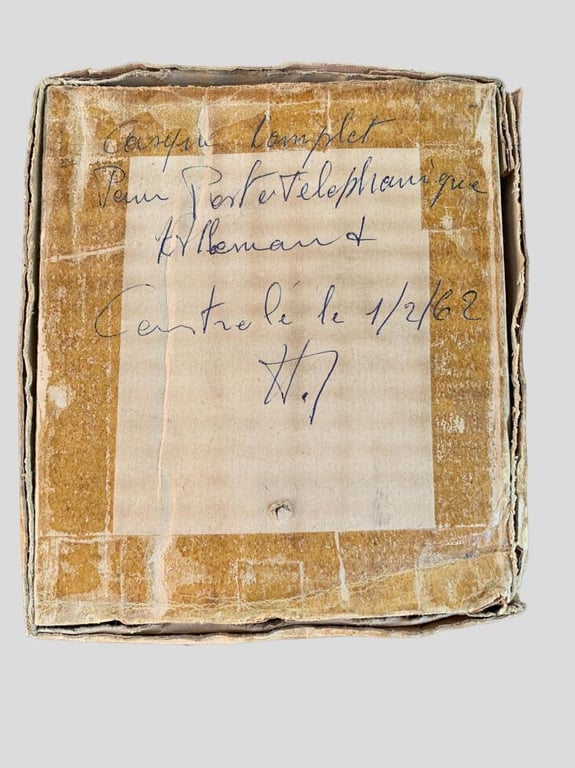 Casque Complet
Pour Poste Telephonique
Allemand
Contrôlé le 1/2/62